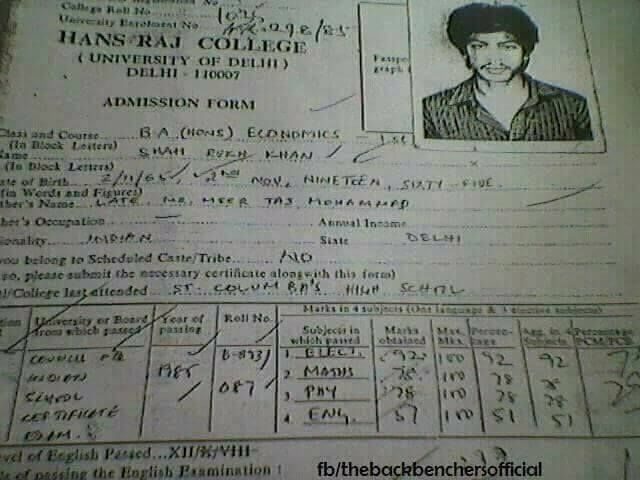 College Roll No.
University Enrolment No.
HANS RAJ COLLEGE
( UNIVERSITY OF DELHI )
DELHI - 110007
ADMISSION FORM
Class and Course B.A (HONS) ECONOMICS
(In Block Letters)
Name SHAH RUKH KHAN
(In Block Letters)
ate of Birth 2/11/65, 2nd NOV, NINETEEN, SIXTY-FIVE
(in Words and Figures)
ther's Name LATE MR. MEER TAJ MOHAMMAD
her's Occupation Annual Income
ionality INDIAN State DELHI
you belong to Scheduled Caste/Tribe NO
so, please submit the necessary certificate alongwith this form)
l/College last attended ST. COLUMBA'S HIGH SCHOOL
University or Board from which passed Year of passing Roll No. Marks in 4 subjects (One language & 3 elected subjects)
Subjects in which passed Marks obtained Max. Mks. Percentage Agg. in 4 Subjects Percentage PCM/PCB
COUNCIL 1. ELECT. 92 100 92 92
INDIAN 1985 2. MATHS 78 100 78 78
SCHOOL 087 3. PHY 78 100 78 78
CERTIFICATE 4. ENG. 51 100 51 51
EXAM.
evel of English Passed...XII/X/VIII
of passing the English Examination :
fb/thebackbenchersofficial